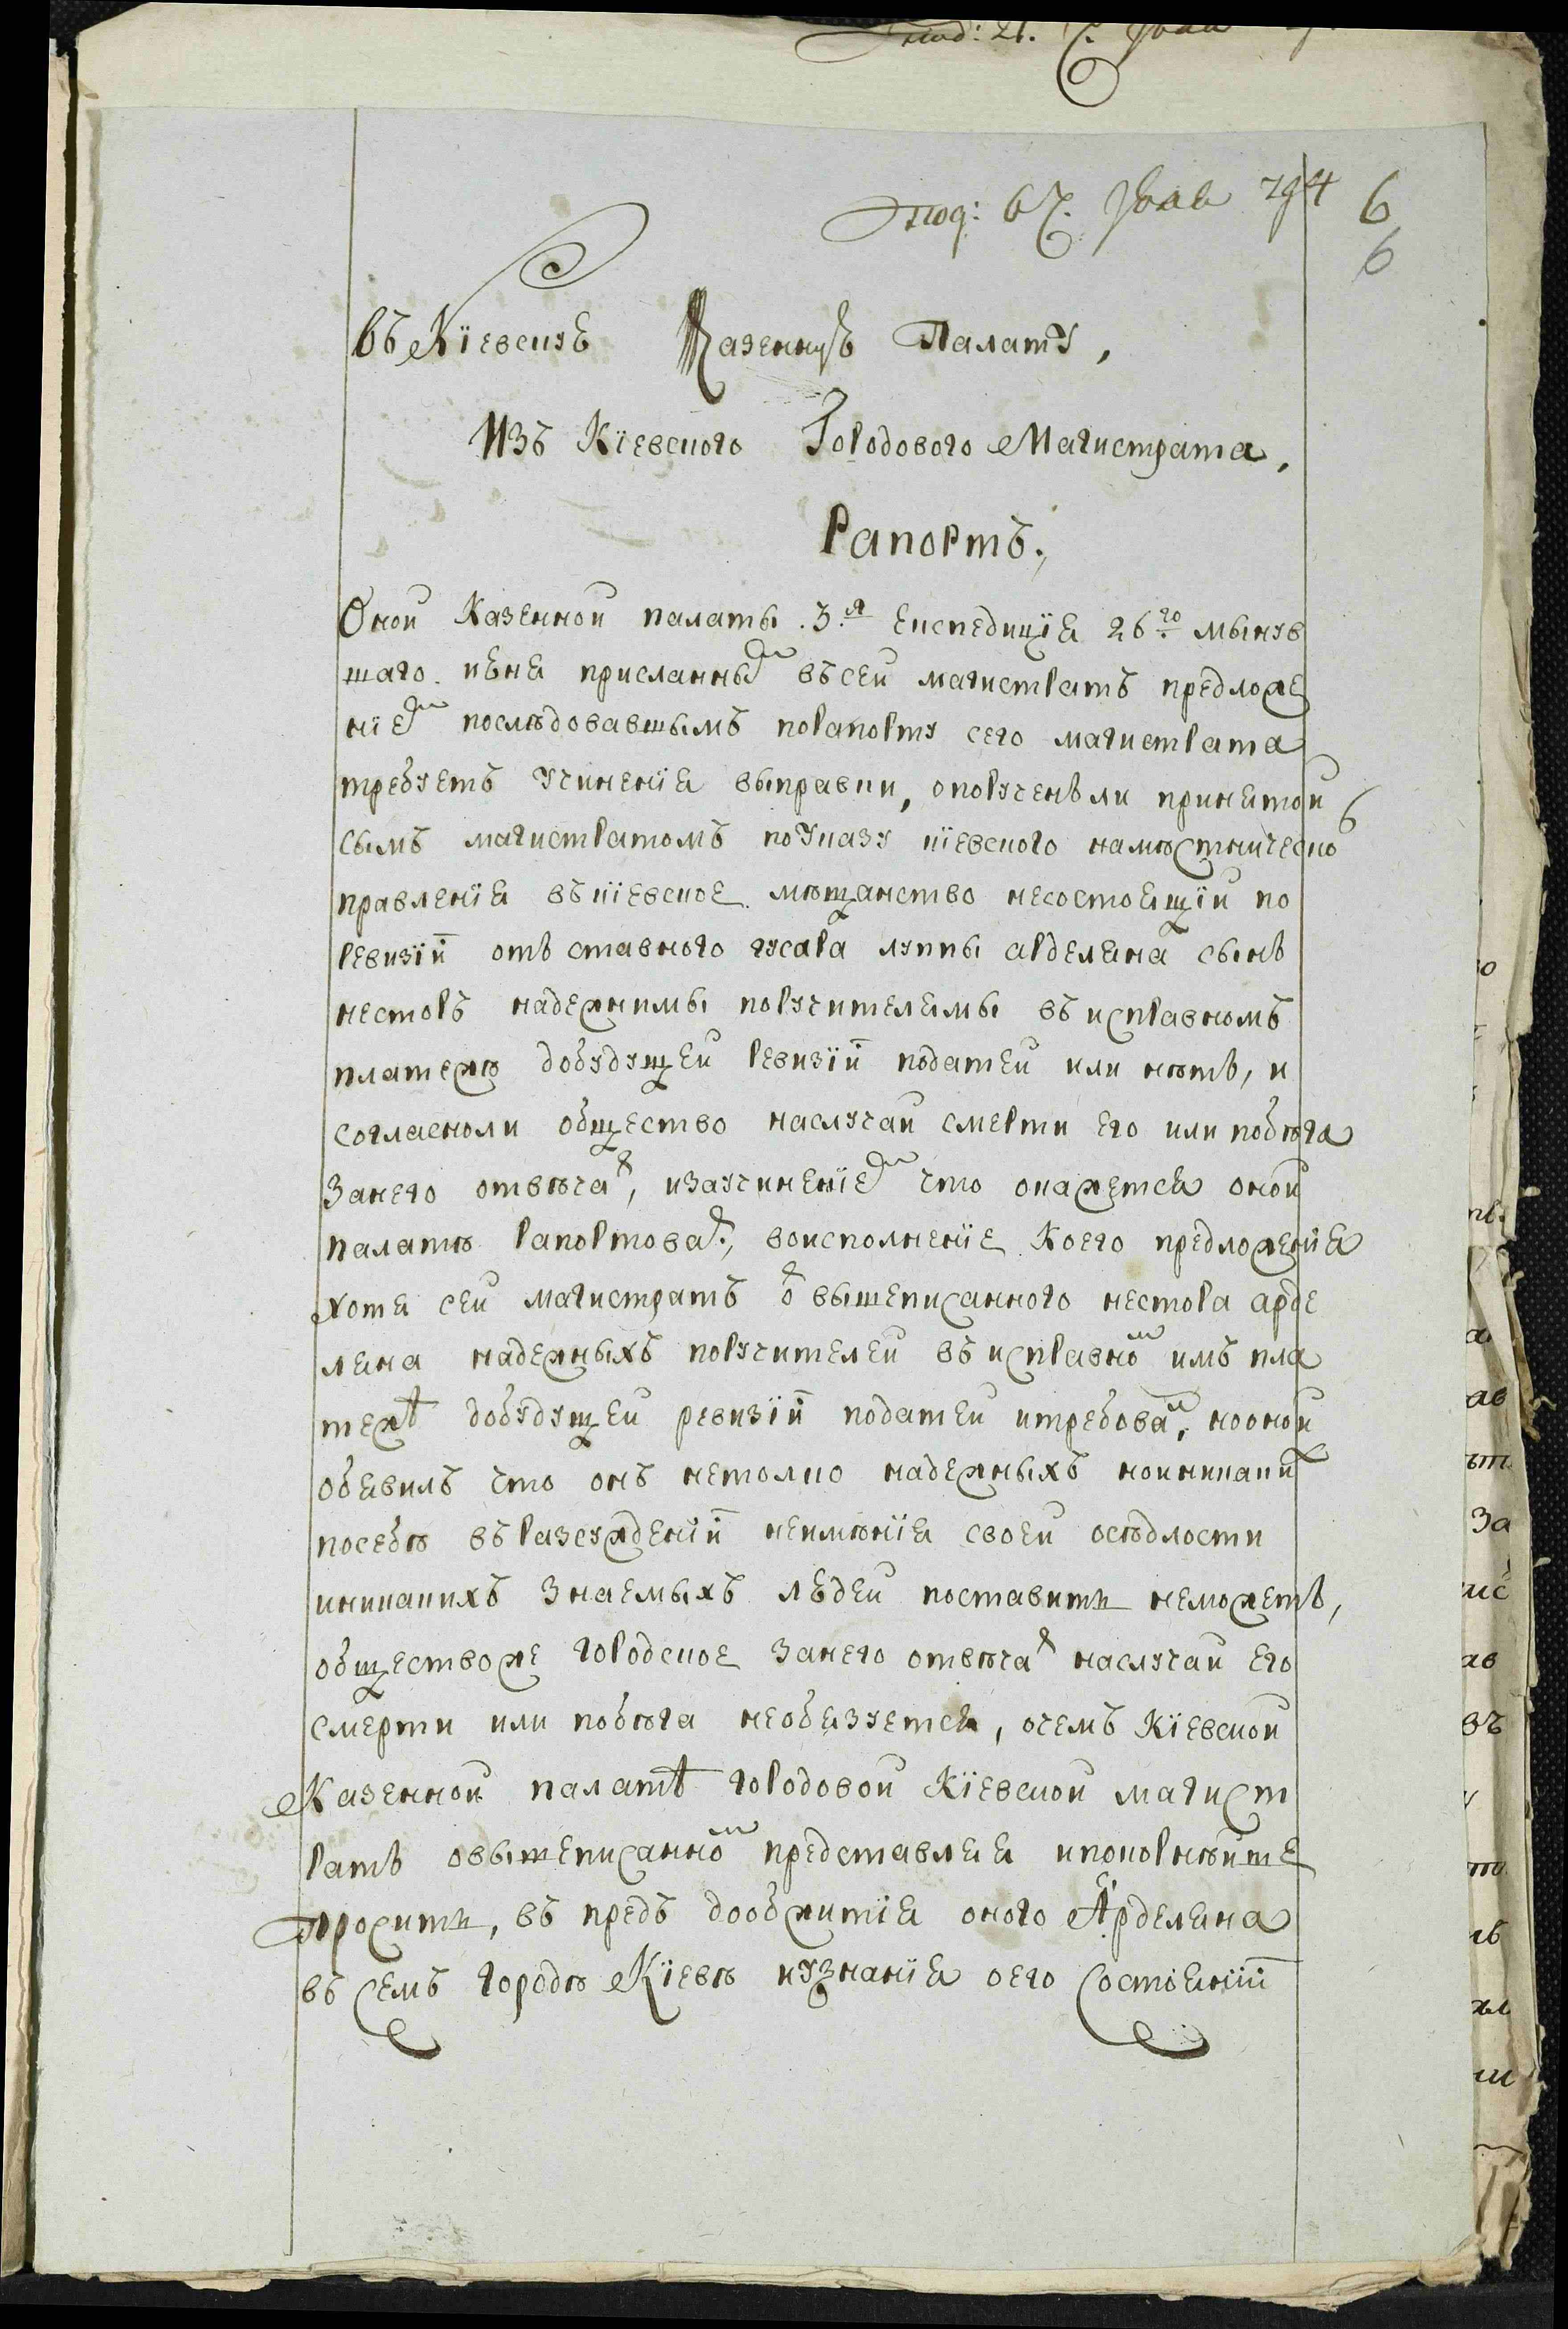 под: 6 г. Июля 794
6
6
въ Кїевскую Казенную Палату,
Изъ Кїевского Городового Магистрата,
Рапортъ.
Оной Казенной палаты 3.я Експедиція 26го мынув
шаго июня присланным въ сей магистратъ предложе
ніем послѣдовавшымъ порапорту сего магистрата
требуетъ учиненія выправки, опорученъ ли принятой
сымъ магистратомъ поуказу кїевского намѣстническо
правленія въ кїевское мѣщанство несостоящїй по
ревизїи отъ ставного гусара луппы арделяна сынъ
несторъ надежнимы поручителямы въ исправномъ
платежѣ добудущей ревизїи податей или нѣтъ, и
согласноли общество наслучай смерти его или побѣга
Занего отвѣчат, изаучиненїем что окажется оной
палатѣ рапортоват, воисполненїе Коего предложенія
хотя сей магистратъ от вышеписанного нестора арде
ляна надежныхъ поручителей въ исправном имъ пла
тежѣ добудущей ревизїи податей итребовал, нооной
обявилъ что онъ нетолко надежныхъ ноиникаких
посебѣ въ разсужденїи неимѣнїя своей осѣдлости
иникакихъ Знаемыхъ людей поставити неможетъ,
обществоже городское Занего отвѣчат наслучай его
смерти или побѣга необязуется, очемъ Кїевской
Казенной палатѣ городовой Кїевской магист
ратъ овышеписанном представляя ипокорнѣйше
просити, въ предъ дообжитїя оного Арделяна
въ семъ городѣ Кїевѣ иузнанїя оего состоянїи